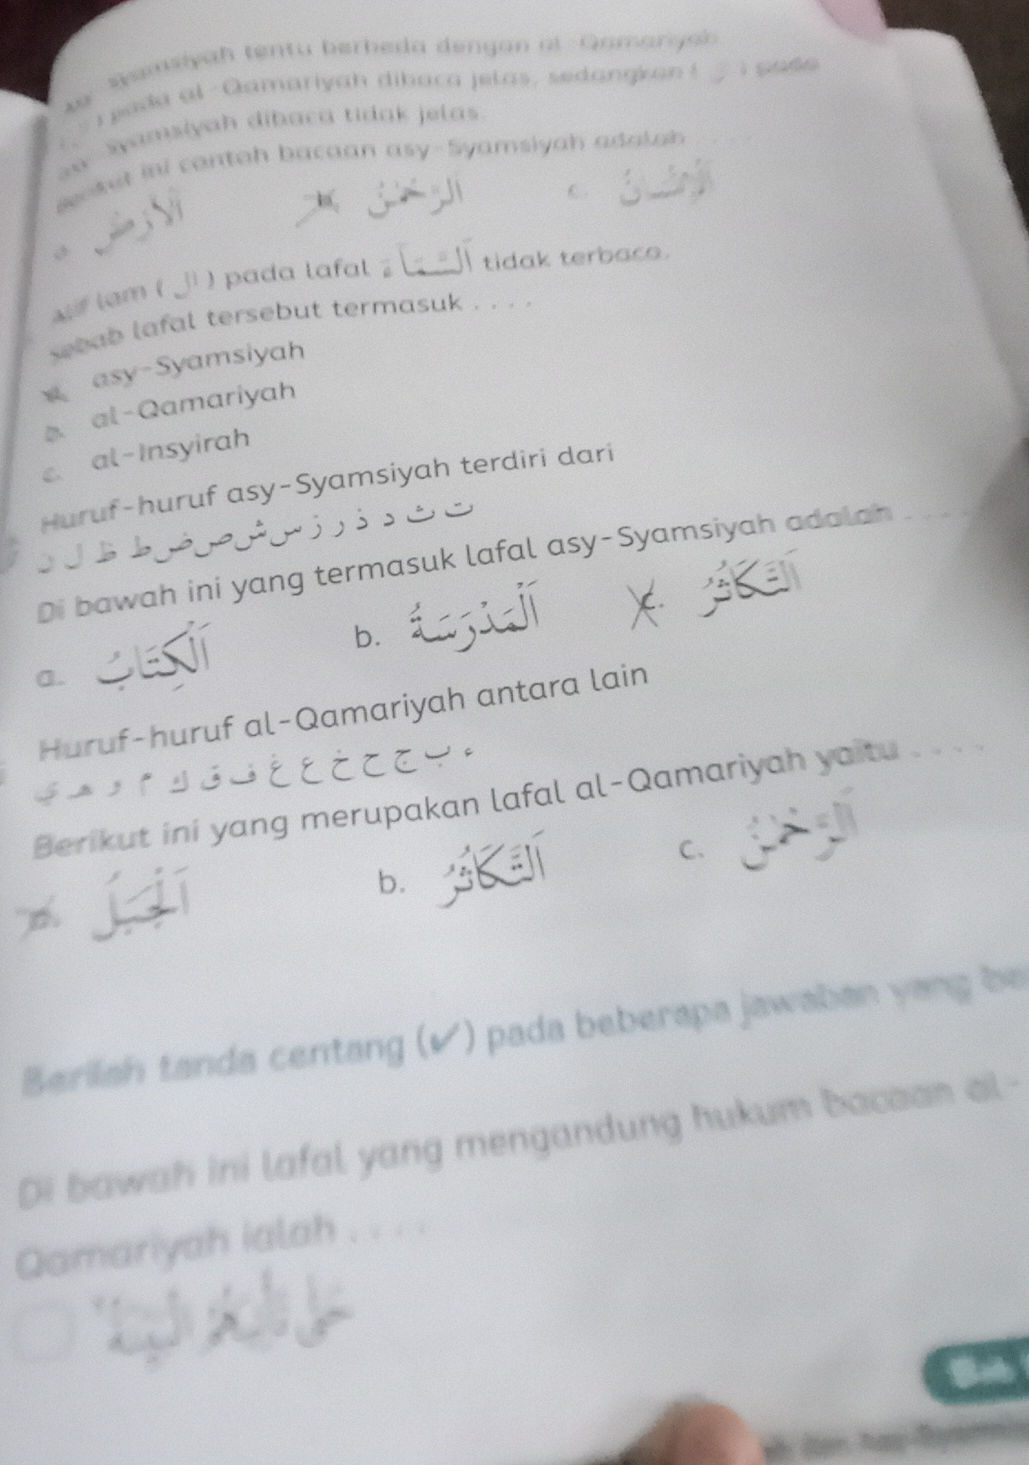 asy-Syamsiyah tentu berbeda dengan al-Qamariyah
pada al-Qamariyah dibaca jelas, sedangkan ( ال ) pada
asy-Syamsiyah dibaca tidak jelas.
Berikut ini contoh bacaan asy-Syamsiyah adalah . . . .
a. اَلْأَرْضُ b. اَلرَّحْمٰنُ c. اَلْإِنْسَانُ
Alif lam ( ال ) pada lafal اَلسَّمَآءُ tidak terbaca,
sebab lafal tersebut termasuk . . . .
a. asy-Syamsiyah
b. al-Qamariyah
c. al-Insyirah
Huruf-huruf asy-Syamsiyah terdiri dari
ت ث د ذ ر ز س ش ص ض ط ظ ل ن
Di bawah ini yang termasuk lafal asy-Syamsiyah adalah . . . .
a. اَلْكِتَابُ b. اَلْمَدْرَسَةُ c. اَلتَّكَاثُرُ
Huruf-huruf al-Qamariyah antara lain
ء ب ج ح خ ع غ ف ق ك م و هـ ي
Berikut ini yang merupakan lafal al-Qamariyah yaitu . . . .
a. اَلْجَبَلُ b. اَلتَّكَاثُرُ c. اَلرَّحْمٰنُ
Berilah tanda centang (✔) pada beberapa jawaban yang be
Di bawah ini lafal yang mengandung hukum bacaan al-
Qamariyah ialah . . . .